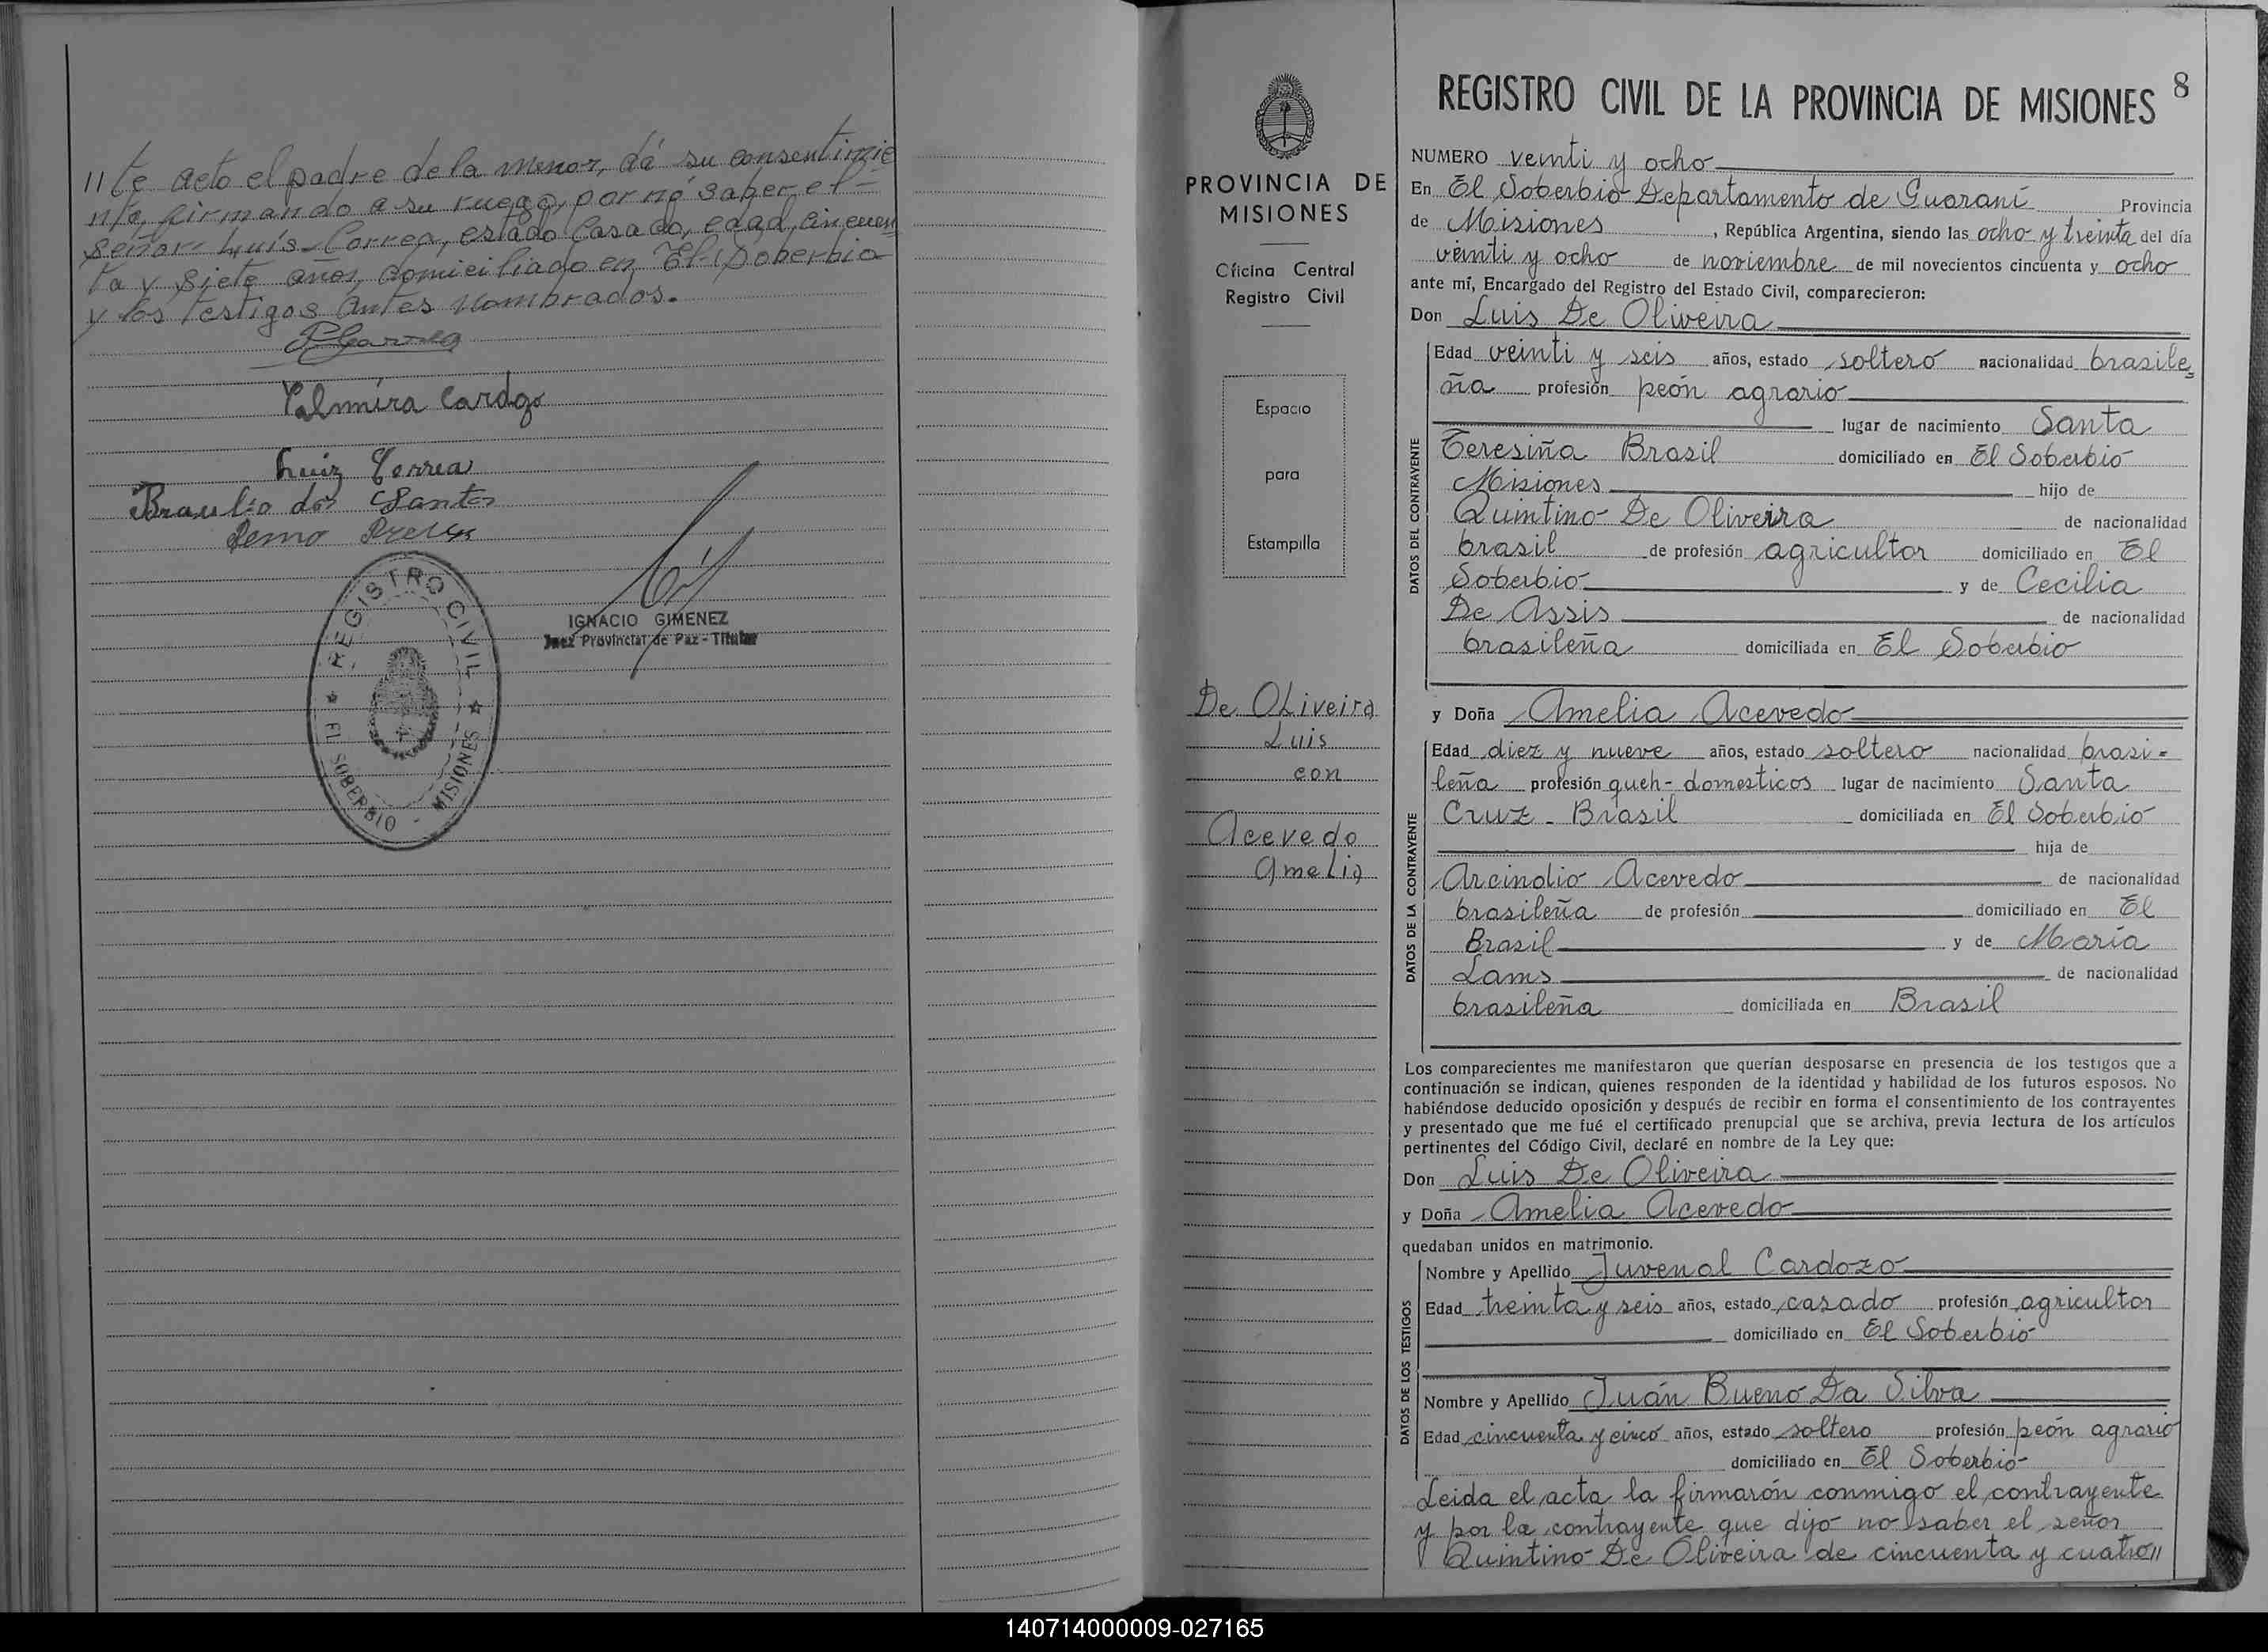 //te acto el padre de la menor, dá su consentimie
nto, firmando a su ruego, por nó saber el-
señor Luís Correa, estado Casado, edad, cincuen
ta y Siete años, domiciliado en El Soberbio
y los testigos antes nombrados.
Palmira Cardozo
Luiz Correa
Braulio dos Santos
REGISTRO CIVIL
EL SOBERBIO - MISIONES
IGNACIO GIMENEZ
Juez Provincial de Paz - Titular
PROVINCIA DE
MISIONES
Oficina Central
Registro Civil
Espacio
para
Estampilla
De Oliveira
Luis
con
Acevedo
Amelia
8
REGISTRO CIVIL DE LA PROVINCIA DE MISIONES
NUMERO veinti y ocho
En El Soberbio Departamento de Guaraní Provincia
de Misiones, República Argentina, siendo las ocho y treinta del día
veinti y ocho de noviembre de mil novecientos cincuenta y ocho
ante mí, Encargado del Registro del Estado Civil, comparecieron:
Don Luis De Oliveira
DATOS DEL CONTRAYENTE
Edad veinti y seis años, estado soltero nacionalidad brasile
ña profesión peón agrario
lugar de nacimiento Santa
Teresiña Brasil domiciliado en El Soberbio
Misiones hijo de
Quintino De Oliveira de nacionalidad
brasil de profesión agricultor domiciliado en El
Soberbio y de Cecilia
De Assis de nacionalidad
brasileña domiciliada en El Soberbio
y Doña Amelia Acevedo
DATOS DE LA CONTRAYENTE
Edad diez y nueve años, estado soltero nacionalidad brasi=
leña profesión queh- domesticos lugar de nacimiento Santa
Cruz - Brasil domiciliada en El Soberbio
hija de
Arcindio Acevedo de nacionalidad
brasileña de profesión domiciliado en El
Brasil y de María
Lams de nacionalidad
brasileña domiciliada en Brasil
Los comparecientes me manifestaron que querían desposarse en presencia de los testigos que a
continuación se indican, quienes responden de la identidad y habilidad de los futuros esposos. No
habiéndose deducido oposición y después de recibir en forma el consentimiento de los contrayentes
y presentado que me fué el certificado prenupcial que se archiva, previa lectura de los artículos
pertinentes del Código Civil, declaré en nombre de la Ley que:
Don Luis De Oliveira
y Doña Amelia Acevedo
quedaban unidos en matrimonio.
DATOS DE LOS TESTIGOS
Nombre y Apellido Juvenal Cardozo
Edad treinta y seis años, estado casado profesión agricultor
domiciliado en El Soberbio
Nombre y Apellido Juán Bueno Da Silva
Edad cincuenta y cinco años, estado soltero profesión peón agrario
domiciliado en El Soberbio
Leida el acta la firmarón conmigo el contrayente
y por la contrayente que dijo no saber el señor
Quintino De Oliveira de cincuenta y cuatro//
140714000009-027165